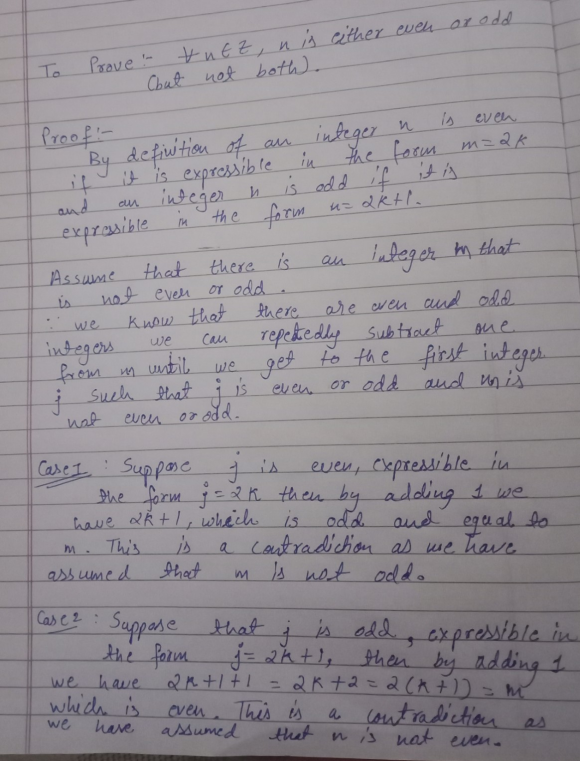 To Prove :- ∀ n ∈ Z, n is either even or odd
(but not both).
Proof:-
By definition of an integer n is even
if it is expressible in the form m = 2k
and an integer n is odd if it is
expressible in the form n = 2k+1.
Assume that there is an integer m that
is not even or odd.
∵ we know that there are even and odd
integers we can repetedly subtract one
from m until we get to the first integer
j such that j is even or odd and m is
not even or odd.
Case 1 : Suppose j is even, expressible in
the form j = 2k then by adding 1 we
have 2k+1, which is odd and equal to
m. This is a contradiction as we have
assumed that m is not odd.
Case 2 : Suppose that j is odd, expressible in
the form j = 2k+1, then by adding 1
we have 2k+1+1 = 2k+2 = 2(k+1) = m
which is even. This is a contradiction as
we have assumed that n is not even.